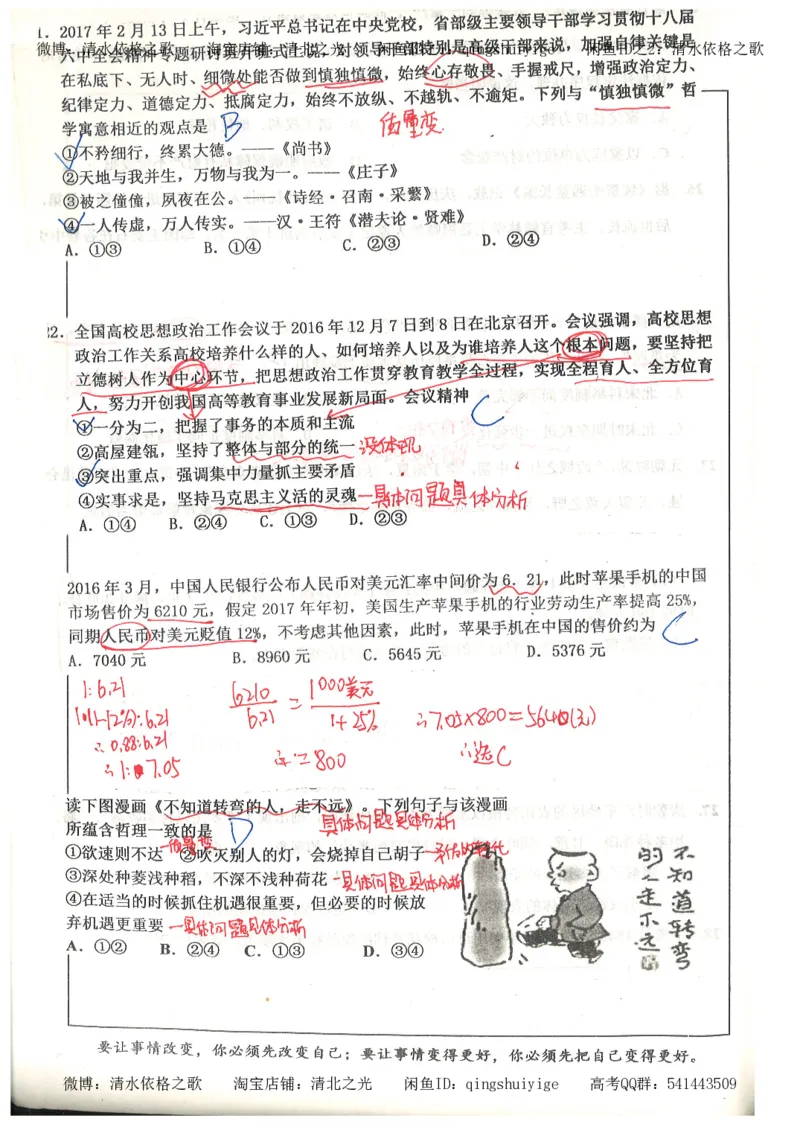 1. 2017 年 2 月 13 日上午，习近平总书记在中央党校，省部级主要领导干部学习贯彻十八届
六中全会精神专题研讨班开班式上说，对领导干部特别是高级干部来说，加强自律关键是
微博：清水依格之歌 淘宝店铺：清北之光 闲鱼ID：qingshuiyige 闲鱼ID之2：清水依格之歌
在私底下、无人时、细微处能否做到慎独慎微，始终心存敬畏、手握戒尺，增强政治定力、
纪律定力、道德定力、抵腐定力，始终不放纵、不越轨、不逾矩。下列与“慎独慎微”哲
学寓意相近的观点是 B 质量变
①不矜细行，终累大德。——《尚书》
②天地与我并生，万物与我为一。——《庄子》
③被之僮僮，夙夜在公。——《诗经·召南·采蘩》
④一人传虚，万人传实。——汉·王符《潜夫论·贤难》
A．①③ B．①④ C．②③ D．②④
22．全国高校思想政治工作会议于 2016 年 12 月 7 日到 8 日在北京召开。会议强调，高校思想
政治工作关系高校培养什么样的人、如何培养人以及为谁培养人这个根本问题，要坚持把
立德树人作为中心环节，把思想政治工作贯穿教育教学全过程，实现全程育人、全方位育
人，努力开创我国高等教育事业发展新局面。会议精神 C
①一分为二，把握了事务的本质和主流
②高屋建瓴，坚持了整体与部分的统一 没体现
③突出重点，强调集中力量抓主要矛盾
④实事求是，坚持马克思主义活的灵魂 —具体问题具体分析
A．①④ B．②④ C．①③ D．②③
2016 年 3 月，中国人民银行公布人民币对美元汇率中间价为 6．21，此时苹果手机的中国
市场售价为 6210 元，假定 2017 年年初，美国生产苹果手机的行业劳动生产率提高 25%，
同期人民币对美元贬值 12%，不考虑其他因素，此时，苹果手机在中国的售价约为 C
A．7040 元 B．8960 元 C．5645 元 D．5376 元
1:6.21
1×(1-12%):6.21
∴0.88:6.21
∴1:7.05
6210/6.21 = 1000美元/1+25%
=800
∴7.05×800=5640(元)
∴选C
读下图漫画《不知道转弯的人，走不远》。下列句子与该漫画
所蕴含哲理一致的是 D 具体问题具体分析
①欲速则不达 —质量变 ②吹灭别人的灯，会烧掉自己胡子
③深处种菱浅种稻，不深不浅种荷花 —具体问题具体分析
④在适当的时候抓住机遇很重要，但必要的时候放
弃机遇更重要 —具体问题具体分析
A．①② B．②④ C．①③ D．③④
不知道转弯
的人走不元
要让事情改变，你必须先改变自己；要让事情变得更好，你必须先把自己变得更好。
微博：清水依格之歌 淘宝店铺：清北之光 闲鱼ID：qingshuiyige 高考QQ群：541443509